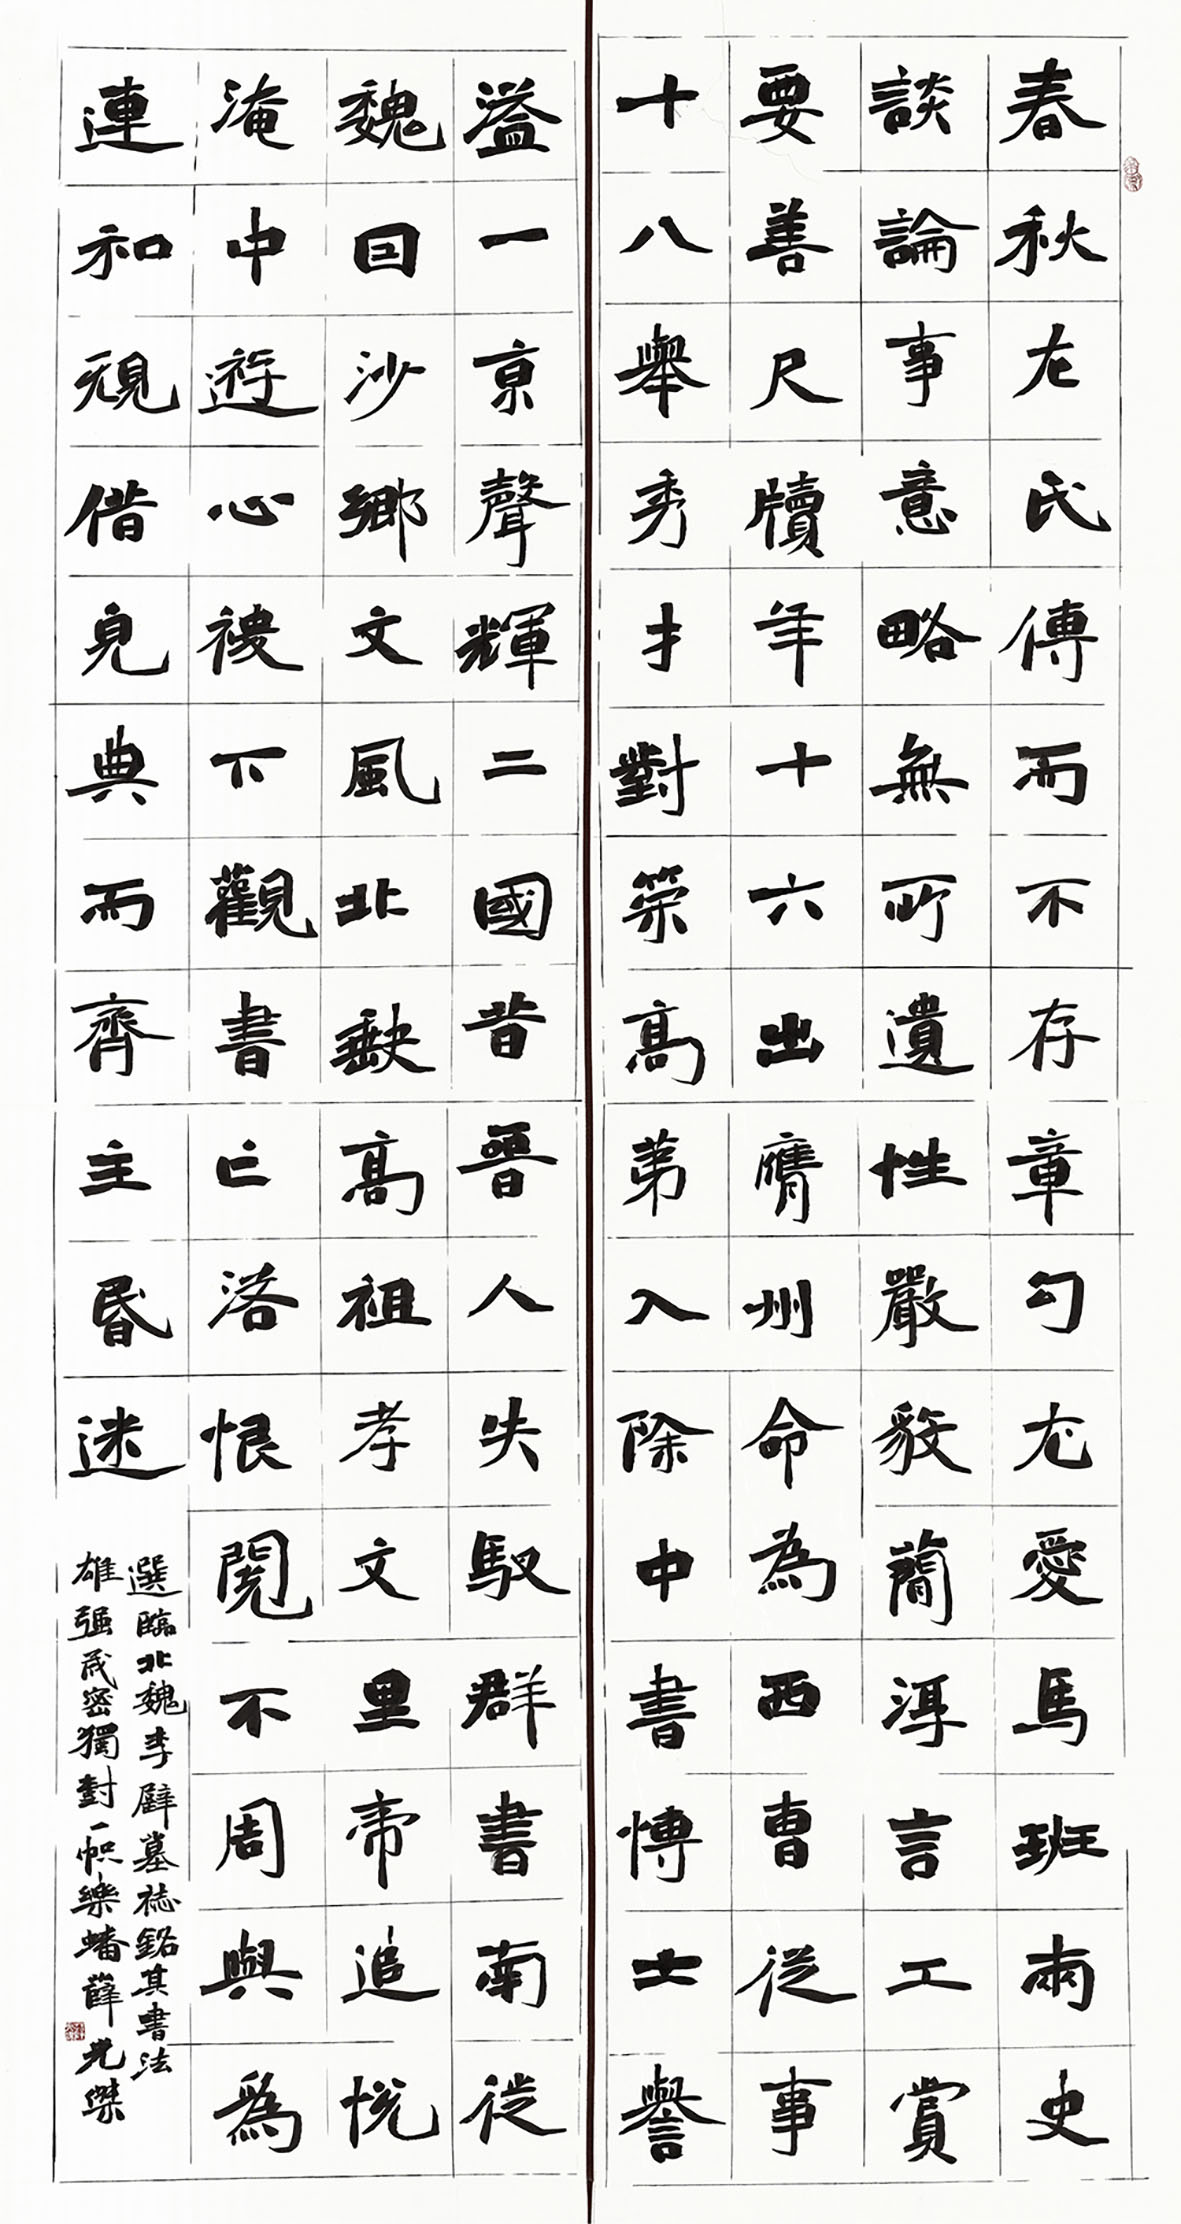 春秋左氏傳而不存章句尤愛馬班兩史
談論事意略無所遺性嚴毅簡淂言工賞
要善尺牘年十六出膺州命為西曹從事
十八舉秀才對策高第入除中書博士譽
溢一京聲輝二國昔晉人失馭群書南徙
魏因沙鄉文風北缺高祖孝文皇帝追悅
淹中遊心稷下觀書亡落恨閱不周與為
連和規借完典而齊主昏迷
選臨北魏李壁墓誌銘其書法
雄强茂密獨對一帜樂蟠薛光傑